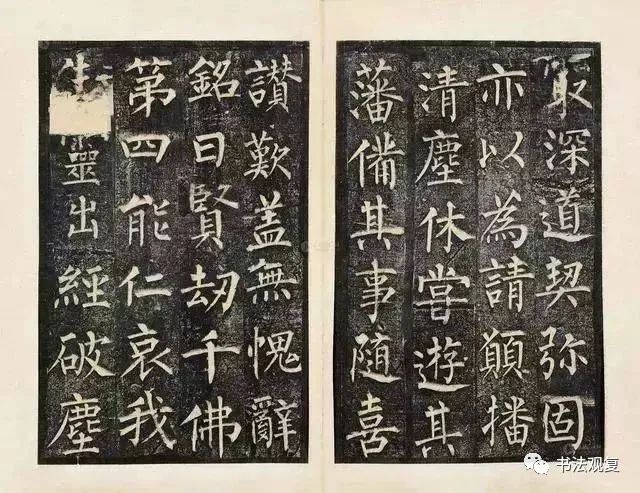 最深道契弥固
亦以為請願播
清塵休嘗遊其
藩備其事隨喜
讃歎盖無愧辭
銘曰賢劫千佛
第四能仁哀我
生靈出經破塵
书法观复